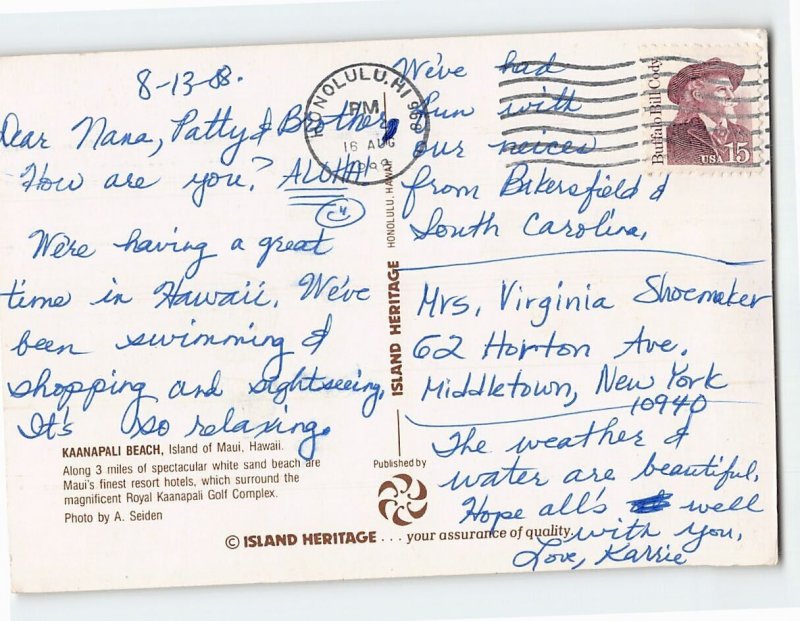 8-13-88.
Dear Nana, Patty & Brother,
How are you? ALOHA!
We're having a great
time in Hawaii. We've
been swimming &
shopping and sightseeing.
It's so relaxing.
KAANAPALI BEACH, Island of Maui, Hawaii.
Along 3 miles of spectacular white sand beach are
Maui's finest resort hotels, which surround the
magnificent Royal Kaanapali Golf Complex.
Photo by A. Seiden
HONOLULU, HI 968
PM
16 AUG
ISLAND HERITAGE HONOLULU, HAWAII
Published by
© ISLAND HERITAGE . . . your assurance of quality.
Buffalo Bill Cody
USA 15
We've had
fun with
our neices
from Bakersfield &
South Carolina.
Mrs. Virginia Shoemaker
62 Horton Ave.
Middletown, New York
10940
The weather &
water are beautiful.
Hope all's well
with you.
Love, Karrie